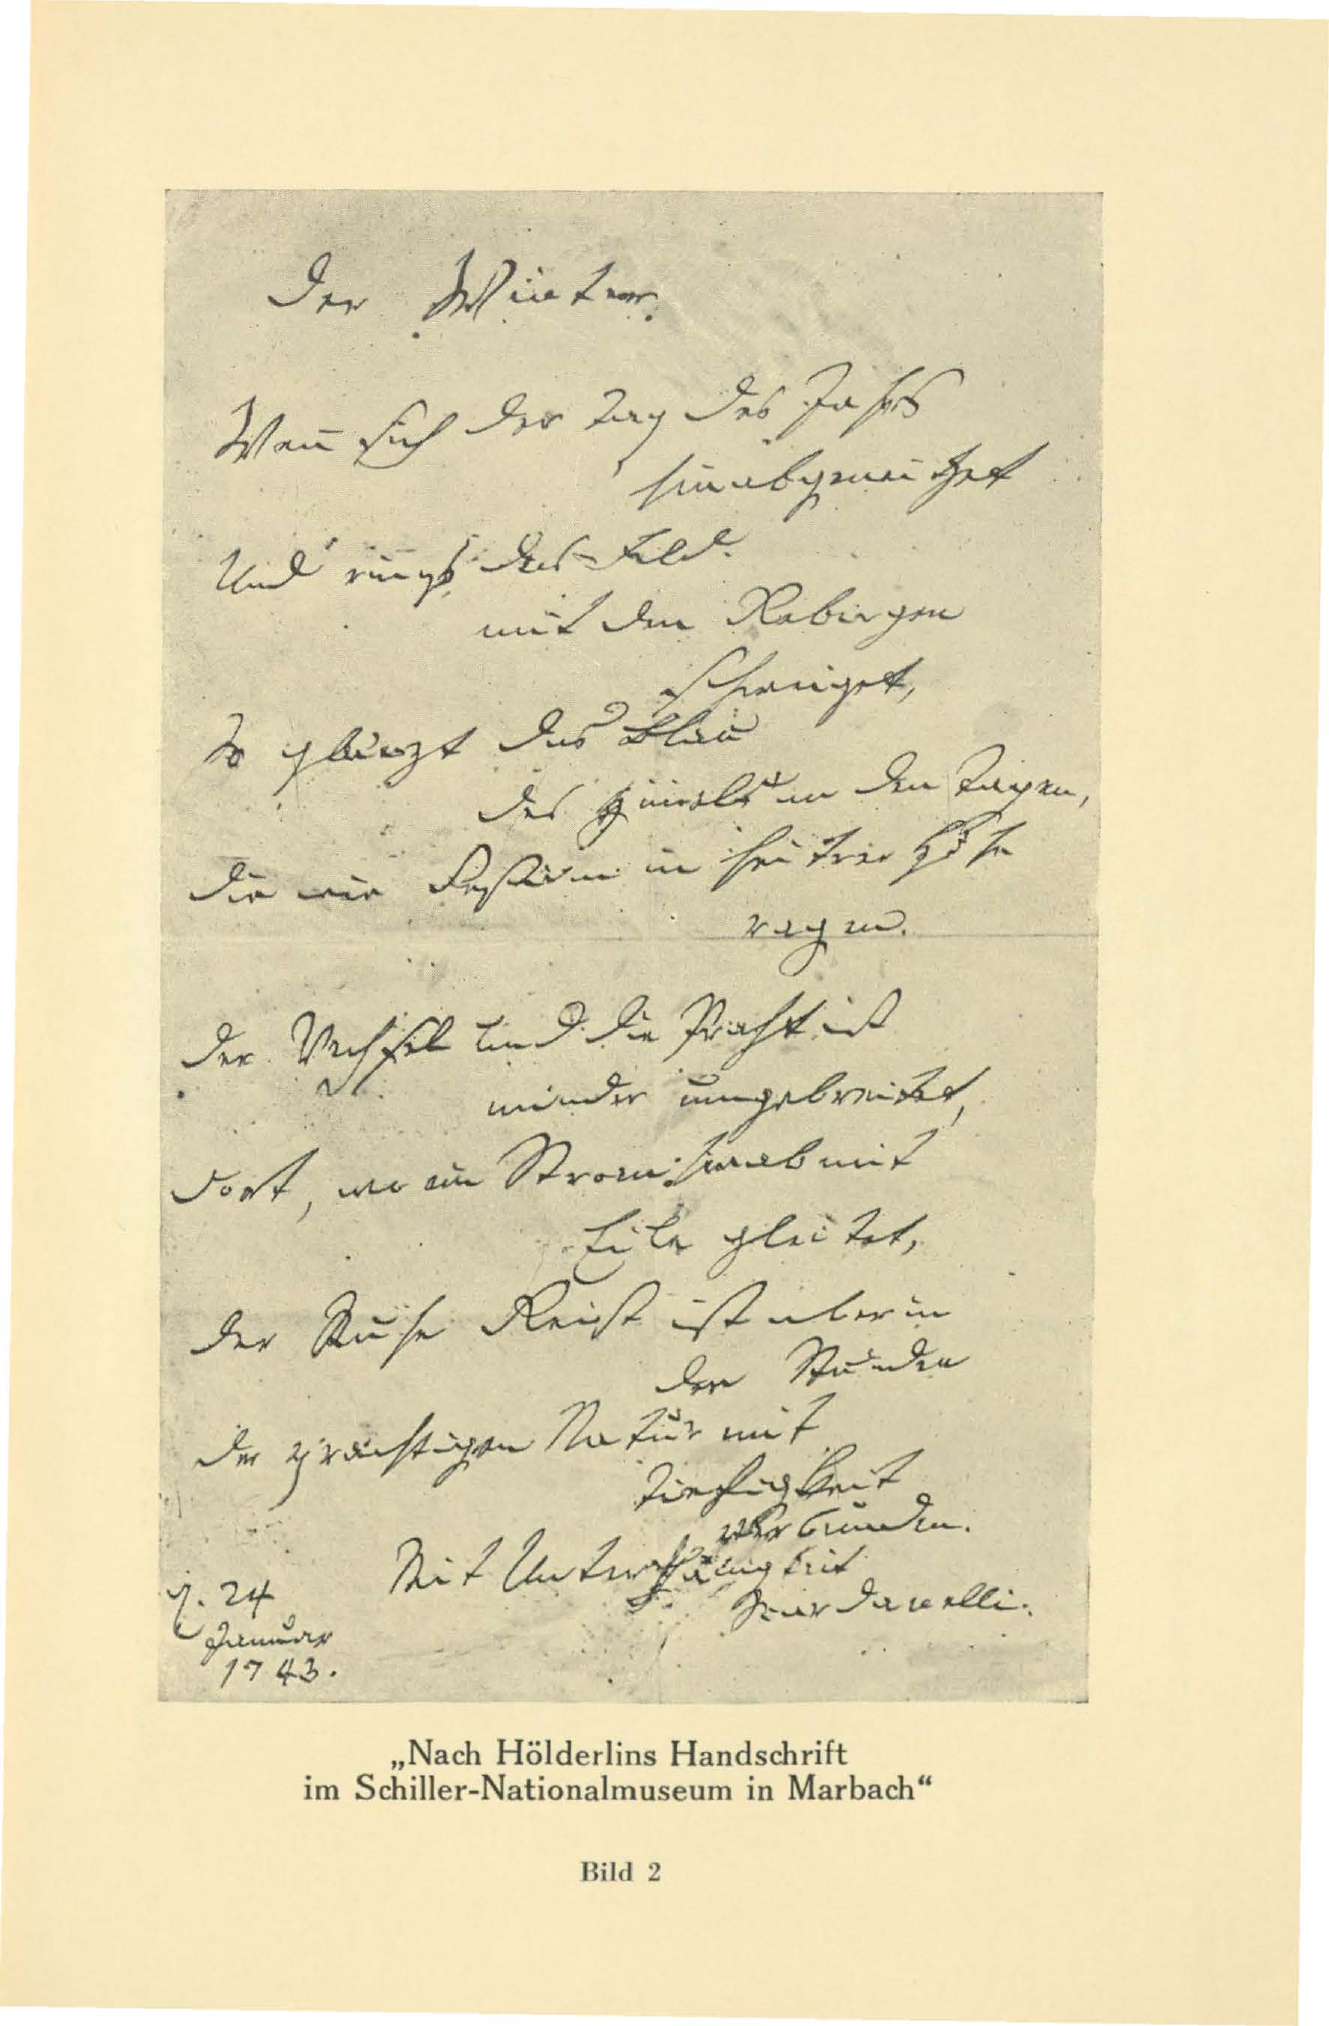 Der Winter.
Wen̄ sich der Tag des Jahrs
hinabgeneiget
Und rings das Feld
mit den Gebirgen
schweiget,
So glänzt das Blau
des Him̄els an den Tagen,
Die wie Gestirn in heitrer Höhe
ragen.
Der Wechsel und die Pracht ist
minder umgebreitet,
Dort, wo ein Strom hinab mit
Eile gleitet,
Der Ruhe Geist ist aber in
den Stunden
Der prächtigen Natur mit
Tiefigkeit
verbunden.
Mit Unterthänigkeit
Scardanelli.
d. 24
Januar
1743.
„Nach Hölderlins Handschrift
im Schiller-Nationalmuseum in Marbach“
Bild 2